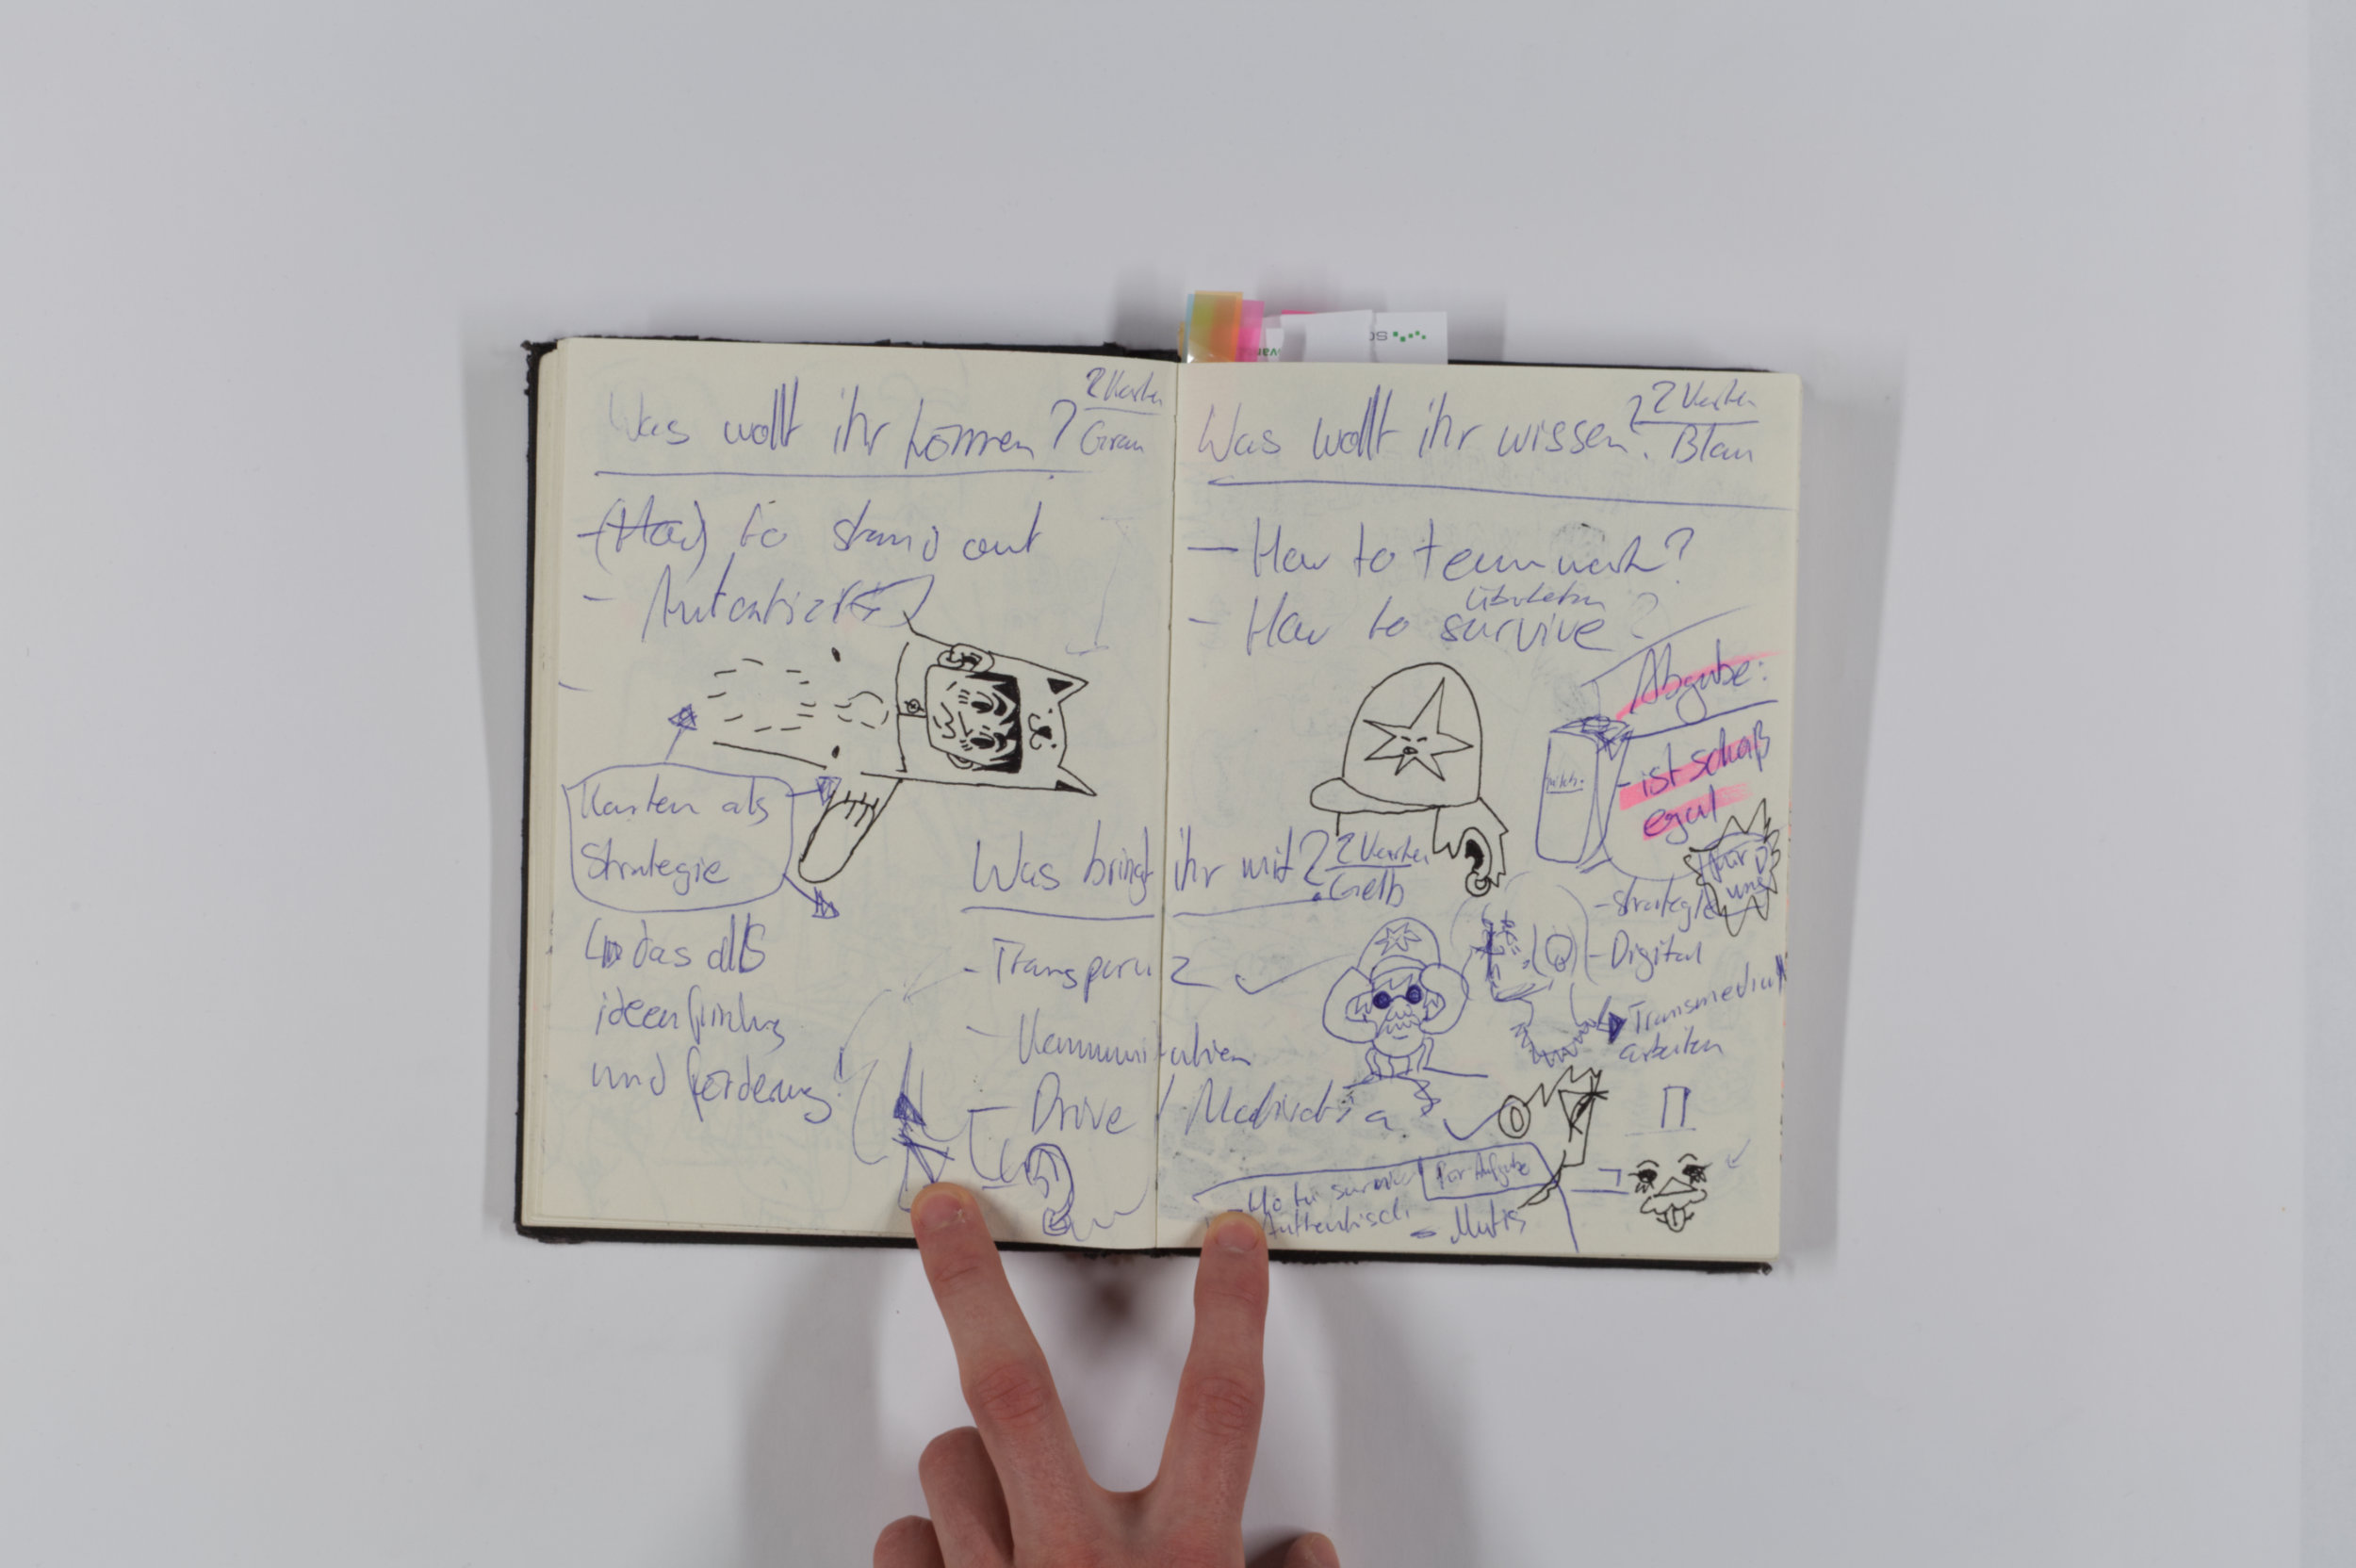 Was wollt ihr können?
2 Karten
Grau
-(How) to stand out
- Autentizi
Karten als
Strategie
das als
ideenfindung
und förderung!
Was wollt ihr wissen?
2 Karten
Blau
- How to teamwork?
überleben
- How to survive?
Abgabe:
- ist schaß
egal
für
uns
Was bringt ihr mit?
2 Karten
Gelb
- Transparenz
- Kommunikation
- Drive / Motivation
- Strategie
- Digital
Transmedial
arbeiten
Für Aufgabe
- How to survive
Authentisch
- Mutig